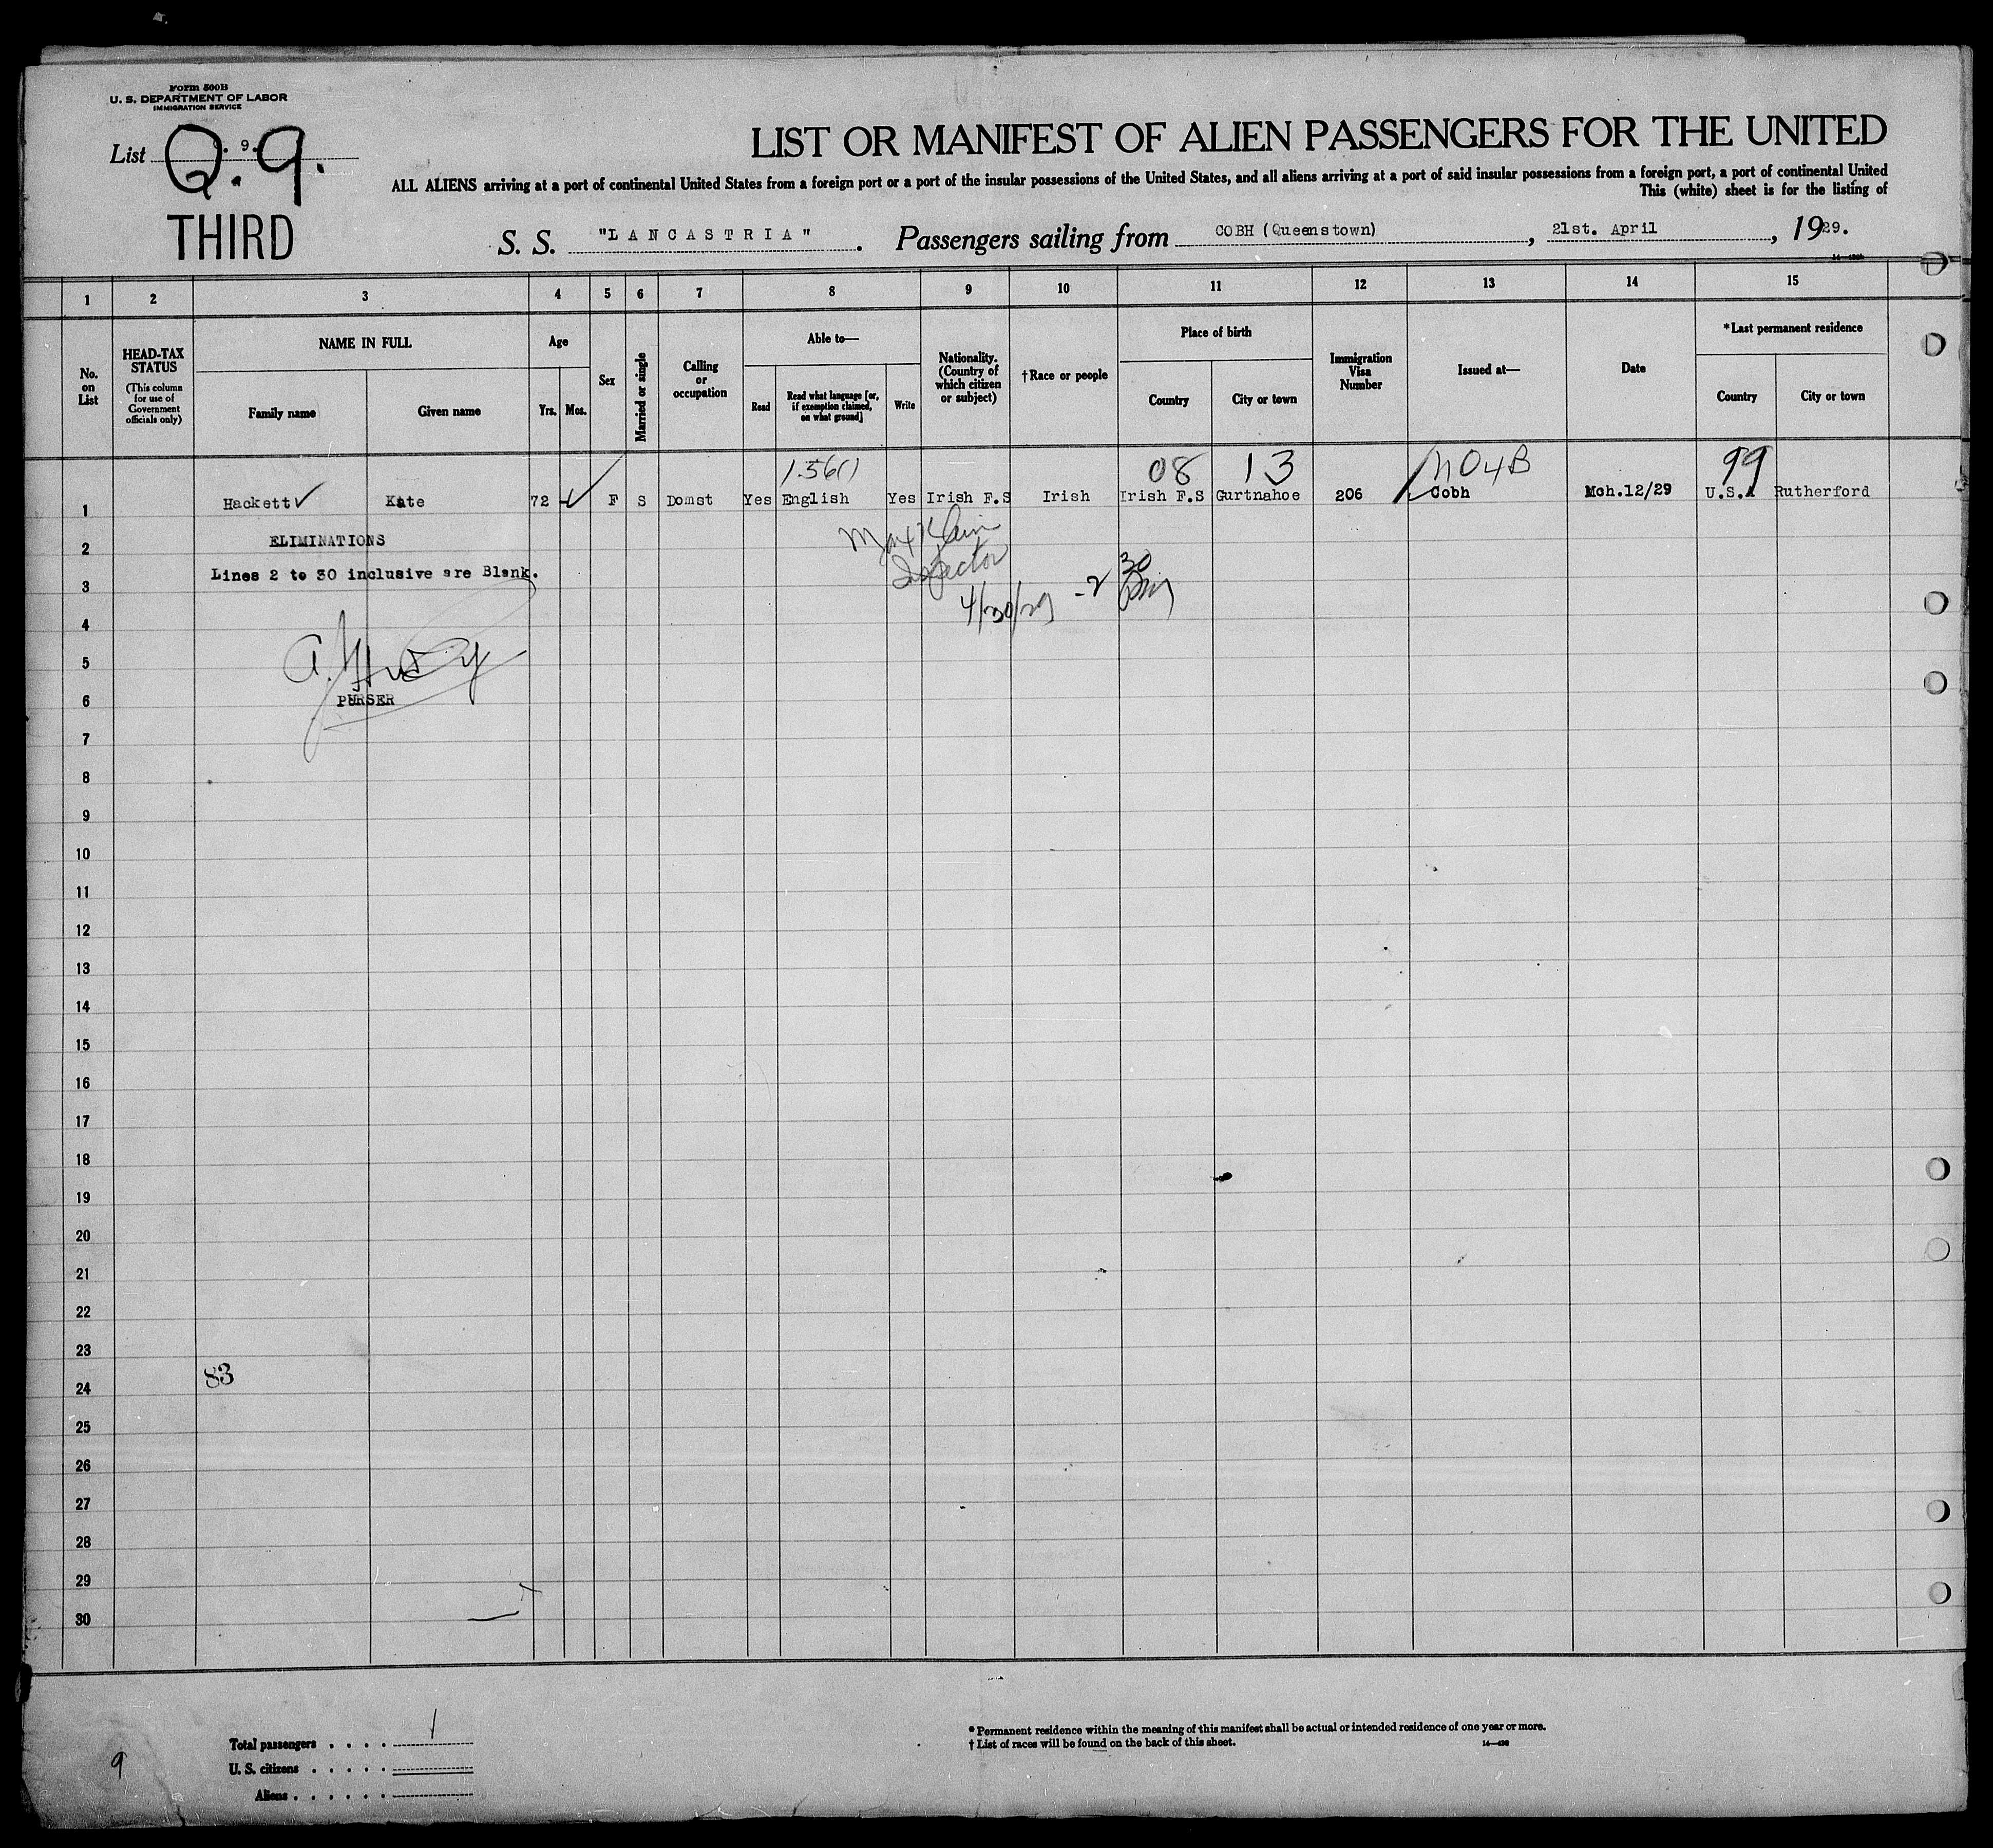 Form 500B
U. S. DEPARTMENT OF LABOR
IMMIGRATION SERVICE
List Q. 9.
THIRD
LIST OR MANIFEST OF ALIEN PASSENGERS FOR THE UNITED
ALL ALIENS arriving at a port of continental United States from a foreign port or a port of the insular possessions of the United States, and all aliens arriving at a port of said insular possessions from a foreign port, a port of continental United
This (white) sheet is for the listing of
S. S. "LANCASTRIA". Passengers sailing from COBH (Queenstown), 21st. April, 1929.
1 2 3 4 5 6 7 8 9 10 11 12 13 14 15
No. on List
HEAD-TAX STATUS (This column for use of Government officials only)
NAME IN FULL
Family name Given name
Age
Yrs. Mos.
Sex
Married or single
Calling or occupation
Able to—
Read
Read what language [or, if exemption claimed, on what ground]
Write
Nationality. (Country of which citizen or subject)
†Race or people
Place of birth
Country City or town
Immigration Visa Number
Issued at—
Date
*Last permanent residence
Country City or town
08 13 99
1 Hackett Kate 72 F S Domst Yes English Yes Irish F.S Irish Irish F.S Gurtnahoe 206 Cobh Mch.12/29 U.S.A Rutherford
2 ELIMINATIONS
3 Lines 2 to 30 inclusive are Blank.
Inspector
4/30/29
4
5
6 PURSER
7
8
9
10
11
12
13
14
15
16
17
18
19
20
21
22
23
83
24
25
26
27
28
29
30
Total passengers . . . . 1
U. S. citizens . . . . .
Aliens . . . . . .
9
* Permanent residence within the meaning of this manifest shall be actual or intended residence of one year or more.
† List of races will be found on the back of this sheet.